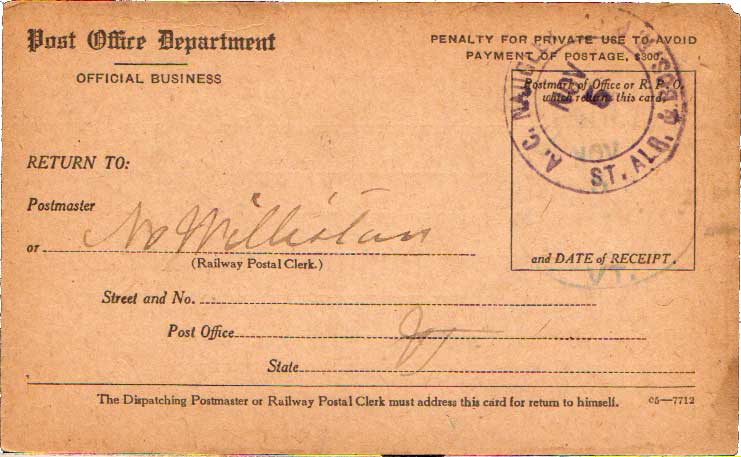 Post Office Department
OFFICIAL BUSINESS
PENALTY FOR PRIVATE USE TO AVOID
PAYMENT OF POSTAGE, $300.
Postmark of Office or R. P. O.
which returns this card.
A. C. NAUG
NOV
5
ST. ALB. & BOS.
RETURN TO:
Postmaster
or No Williston
(Railway Postal Clerk.)
and DATE of RECEIPT.
VT.
Street and No.
Post Office
Vt
State
The Dispatching Postmaster or Railway Postal Clerk must address this card for return to himself.
c5—7712